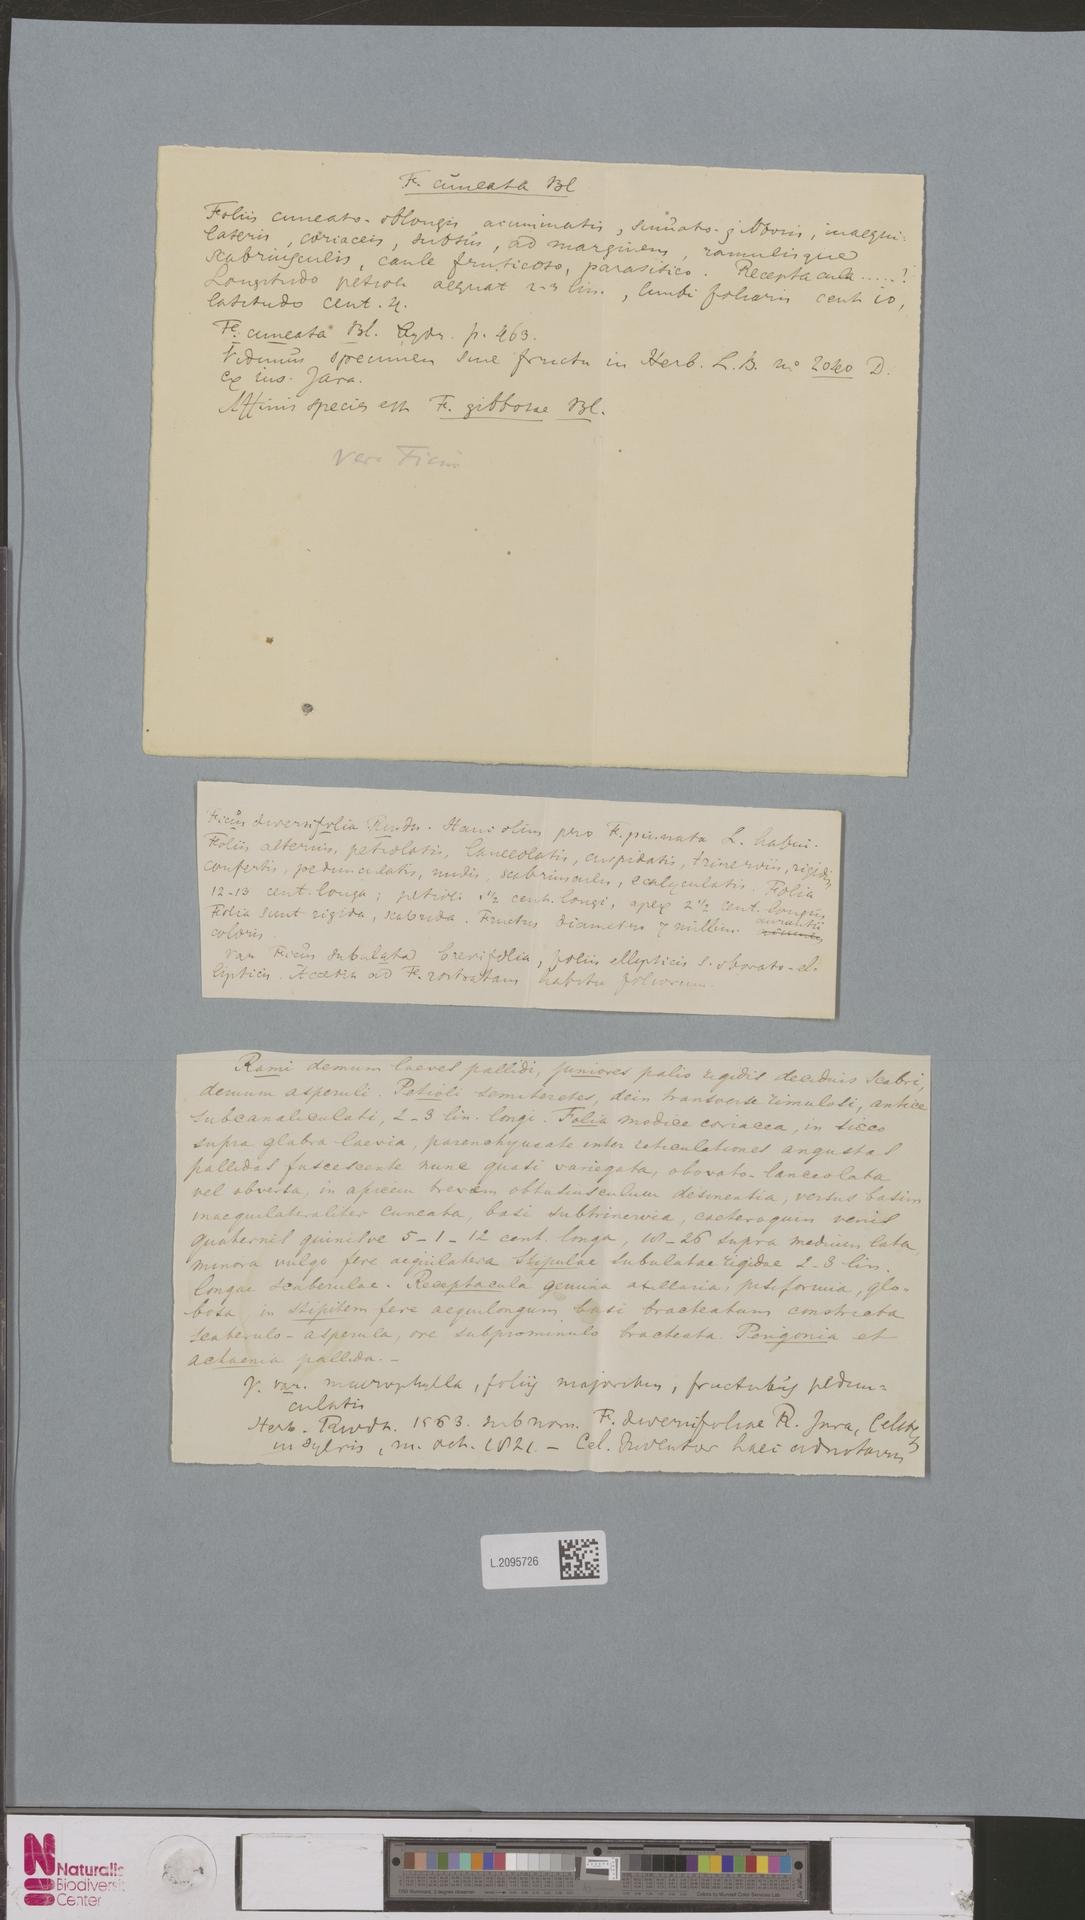 F. cuneata Bl
Foliis cuneato-oblongis acuminatis, sinuato-gibbosis, inaequi-
lateris, coriaceis, subtus, ad marginem, ramulisque
scabriusculis, caule fruticoso, parasitico. Receptacula.....?
Longitudo petioli aequat 2-3 lin., limbi foliaris cent. 10,
latitudo cent. 4.
F. cuneata Bl. Bydr. p. 463.
Vidimus specimen sine fructu in Herb. L.B. no 2040 D.
ex ins. Java.
Affinis species est F. gibbosae Bl.
vera Ficus
Ficus diversifolia Rwdt. Hanc olim pro F. pinnata L. habui.
Foliis alternis, petiolatis, lanceolatis, cuspidatis, trinerviis, rigidis,
confertis, pedunculatis, nudis, scabriusculis, ecalyculatis. Folia
12-13 cent. longa; petioli 1/2 cent. longi, apex 2 1/2 cent. longus
Folia sunt rigida, scabrida. Fructus diametrus 7 millim. aurantii
coloris.
var Ficus subulata brevifolia, foliis ellipticis s. obovato-el-
lipticis. Accedia ad F. rostratam habitu foliorum.
Rami demum laeves pallidi, juniores palis rigidis deciduis scabri,
demum asperuli. Petioli semiteretes, dein transverse rimulosi, antice
subcanaliculati, 2-3 lin. longi. Folia modice coriacea, in sicco
supra glabra laevia, parenchymate inter reticulationes angustas
pallidas fuscescente nunc quasi variegata, obovato-lanceolata
vel obversa, in apicem brevem obtusiusculum desinentia, versus basim
inaequilateraliter cuneata, basi subtrinervia, caeteroquin venis
quaternis quinisve 5-1-12 cent. longa, 18-26 supra medium lata,
minora vulgo fere aequilatera. Stipulae subulatae rigidae 2-3 lin.
longae scaberulae. Receptacula gemina axillaria, pisiformia, glo-
bosa in stipitem fere aequilongum basi bracteatum constricta
scaberulo-asperula, ore subprominulo bracteata. Perigonia et
achaenia pallida.-
γ. var. macrophylla, foliis majoribus, fructubus pedun-
culatis
Herb. Rwdt. 1563. sub nom. F. diversifoliae R. Java,
in sylvis, m. oct. 1821. - Cel. Inventor haec adnotavit
L.2095726
Naturalis
Biodiversity
Center